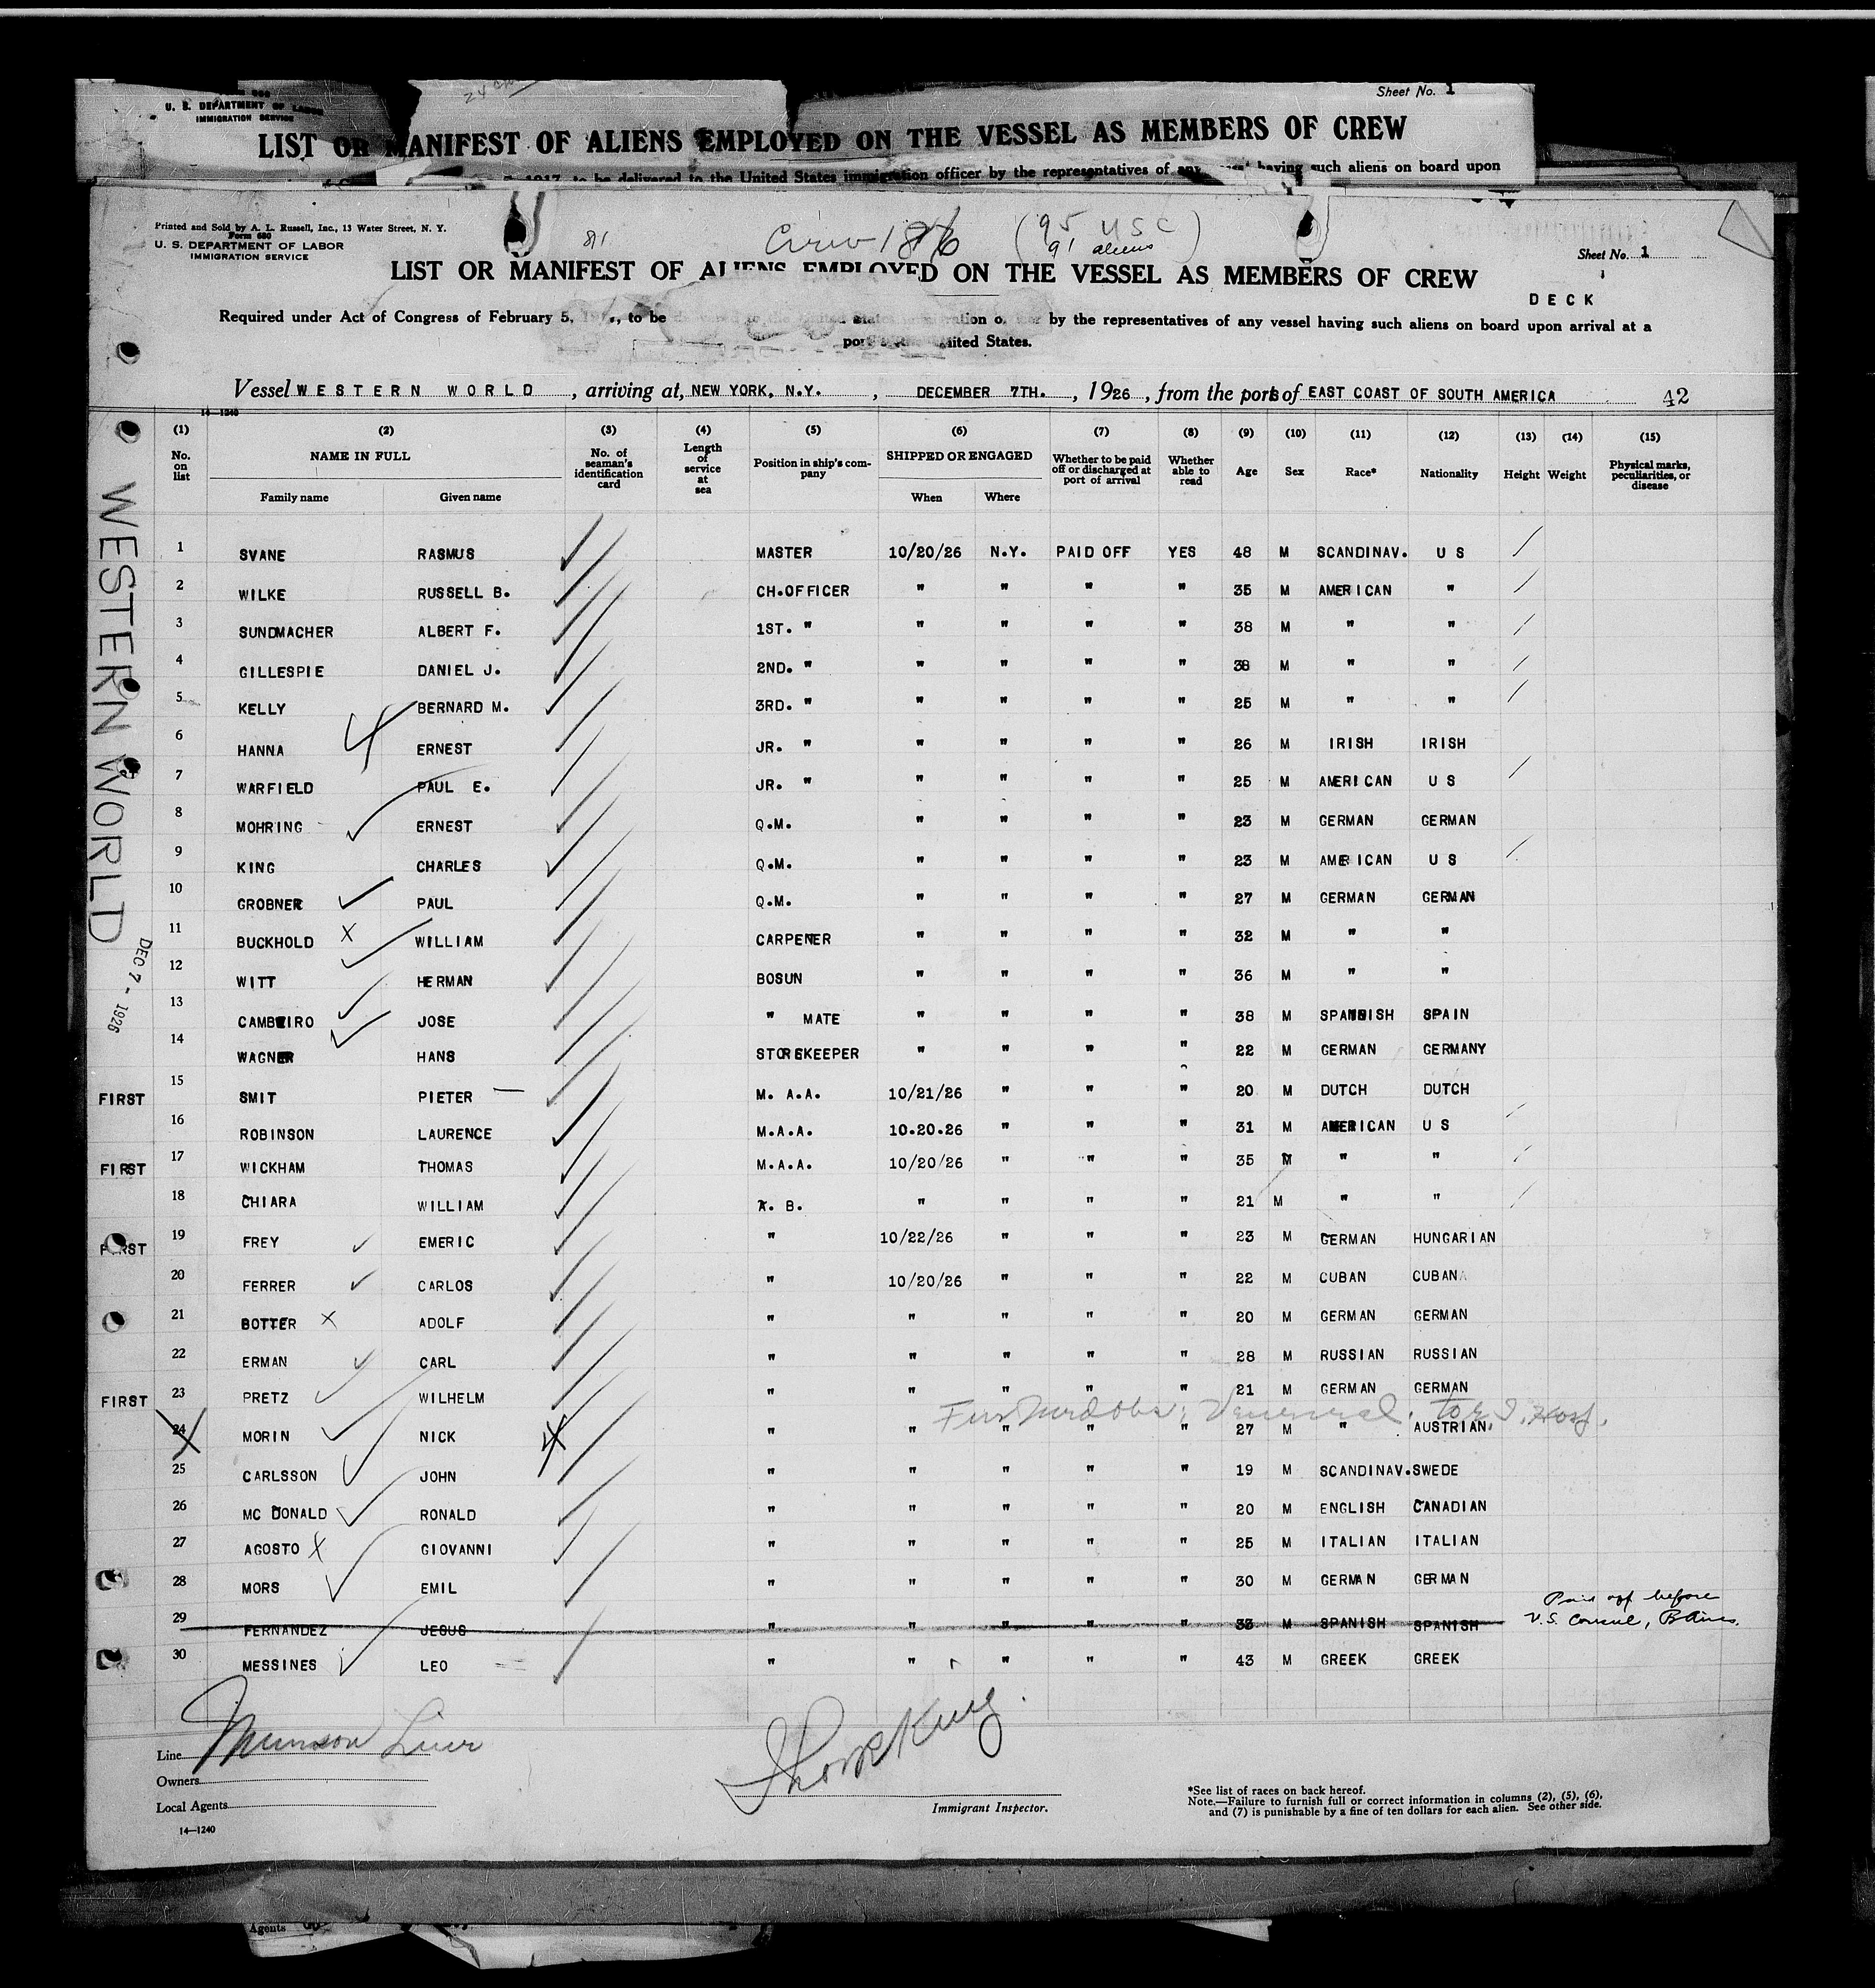 Sheet No. 1
U. S. DEPARTMENT OF LABOR
IMMIGRATION SERVICE
LIST OR MANIFEST OF ALIENS EMPLOYED ON THE VESSEL AS MEMBERS OF CREW
1917, to be delivered to the United States immigration officer by the representatives of any having such aliens on board upon
Printed and Sold by A. L. Russell, Inc., 13 Water Street, N. Y.
Form 680
U. S. DEPARTMENT OF LABOR
IMMIGRATION SERVICE
81 Crew 186 (95 USC
91 aliens)
Sheet No. 1
LIST OR MANIFEST OF ALIENS EMPLOYED ON THE VESSEL AS MEMBERS OF CREW
DECK
Required under Act of Congress of February 5, to be by the representatives of any vessel having such aliens on board upon arrival at a
United States.
Vessel WESTERN WORLD, arriving at, NEW YORK, N.Y., DECEMBER 7TH., 1926, from the ports of EAST COAST OF SOUTH AMERICA 42
14—1240
(1) (2) (3) (4) (5) (6) (7) (8) (9) (10) (11) (12) (13) (14) (15)
No. on list NAME IN FULL No. of seaman's identification card Length of service at sea Position in ship's company SHIPPED OR ENGAGED Whether to be paid off or discharged at port of arrival Whether able to read Age Sex Race* Nationality Height Weight Physical marks, peculiarities, or disease
Family name Given name When Where
1 SVANE RASMUS MASTER 10/20/26 N.Y. PAID OFF YES 48 M SCANDINAV. U S
2 WILKE RUSSELL B. CH.OFFICER " " " " 35 M AMERICAN "
3 SUNDMACHER ALBERT F. 1ST. " " " " " 38 M " "
4 GILLESPIE DANIEL J. 2ND. " " " " " 38 M " "
5 KELLY BERNARD M. 3RD. " " " " " 25 M " "
6 HANNA ERNEST JR. " " " " " 26 M IRISH IRISH
7 WARFIELD PAUL E. JR. " " " " " 25 M AMERICAN U S
8 MOHRING ERNEST Q.M. " " " " 23 M GERMAN GERMAN
9 KING CHARLES Q.M. " " " " 23 M AMERICAN U S
10 GROBNER PAUL Q.M. " " " " 27 M GERMAN GERMAN
11 BUCKHOLD X WILLIAM CARPENER " " " " 32 M " "
12 WITT HERMAN BOSUN " " " " 36 M " "
13 CAMBEIRO JOSE " MATE " " " " 38 M SPANISH SPAIN
14 WAGNER HANS STOREKEEPER " " " " 22 M GERMAN GERMANY
FIRST 15 SMIT PIETER — M. A.A. 10/21/26 " " " 20 M DUTCH DUTCH
16 ROBINSON LAURENCE M.A.A. 10.20.26 " " " 31 M AMERICAN U S
FIRST 17 WICKHAM THOMAS M.A.A. 10/20/26 " " " 35 M " "
18 CHIARA WILLIAM A. B. " " " " 21 M " "
FIRST 19 FREY EMERIC " 10/22/26 " " " 23 M GERMAN HUNGARIAN
20 FERRER CARLOS " 10/20/26 " " " 22 M CUBAN CUBAN
21 BOTTER X ADOLF " " " " " 20 M GERMAN GERMAN
22 ERMAN CARL " " " " " 28 M RUSSIAN RUSSIAN
FIRST 23 PRETZ WILHELM " " " " " 21 M GERMAN GERMAN
24 MORIN NICK " " " " " 27 M " AUSTRIAN
25 CARLSSON JOHN " " " " " 19 M SCANDINAV. SWEDE
26 MC DONALD RONALD " " " " " 20 M ENGLISH CANADIAN
27 AGOSTO X GIOVANNI " " " " " 25 M ITALIAN ITALIAN
28 MORS EMIL " " " " " 30 M GERMAN GERMAN
29 FERNANDEZ JESUS " " " " " 33 M SPANISH SPANISH Paid off before
U.S. Consul, B Aires.
30 MESSINES LEO " " " " " 43 M GREEK GREEK
WESTERN WORLD
DEC 7 - 1926
Line Munson Line
Owners
Local Agents
14—1240
Immigrant Inspector.
*See list of races on back hereof.
Note.—Failure to furnish full or correct information in columns (2), (5), (6),
and (7) is punishable by a fine of ten dollars for each alien. See other side.
Agents